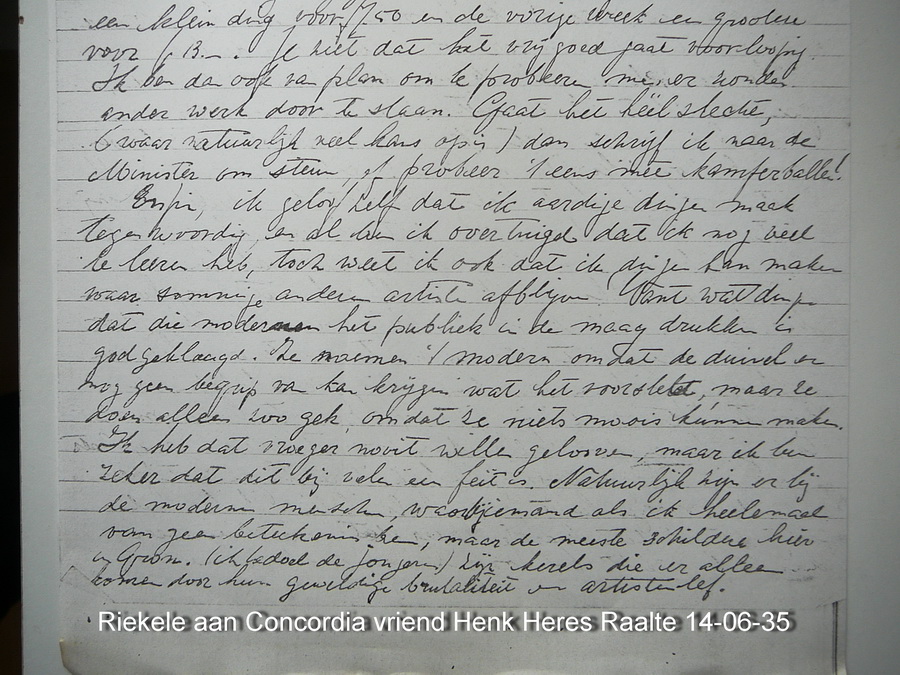 een klein ding voor f 7,50 en de vorige week een grootere
voor f 13.–. Je ziet dat het vrij goed gaat voorloopig.
Ik ben dan ook van plan om te probeeren me er zonder
ander werk door te slaan. Gaat het heel slecht,
(waar natuurlijk veel kans op is) dan schrijf ik naar de
Minister om steun, of probeer 't eens mee kamferballen!
Enfin, ik geloof zelf dat ik aardige dingen maak
tegenwoordig, en al ben ik overtuigd dat ik nog veel
te leeren heb, toch weet ik ook dat ik dingen kan maken
waar sommige anderen artisten afblijven. Want wat dingen
dat die modernen het publiek in de maag drukken is
godgeklaagd. Ze noemen 't modern omdat de duivel er
nog geen begrip van kan krijgen wat het voorstelt, maar ze
doen alleen zoo gek, omdat ze niets moois kunnen maken.
Ik heb dat vroeger nooit willen gelooven, maar ik ben
zeker dat dit bij velen een feit is. Natuurlijk zijn er bij
de modernen menschen, waarbij iemand als ik heelemaal
van geen beteekenis ben, maar de meeste schilders hier
in Gron. (ik bedoel de jongeren) zijn kerels die er alleen
komen door hun geweldige brutaliteit en artistenlef.
Riekele aan Concordia vriend Henk Heres Raalte 14-06-35